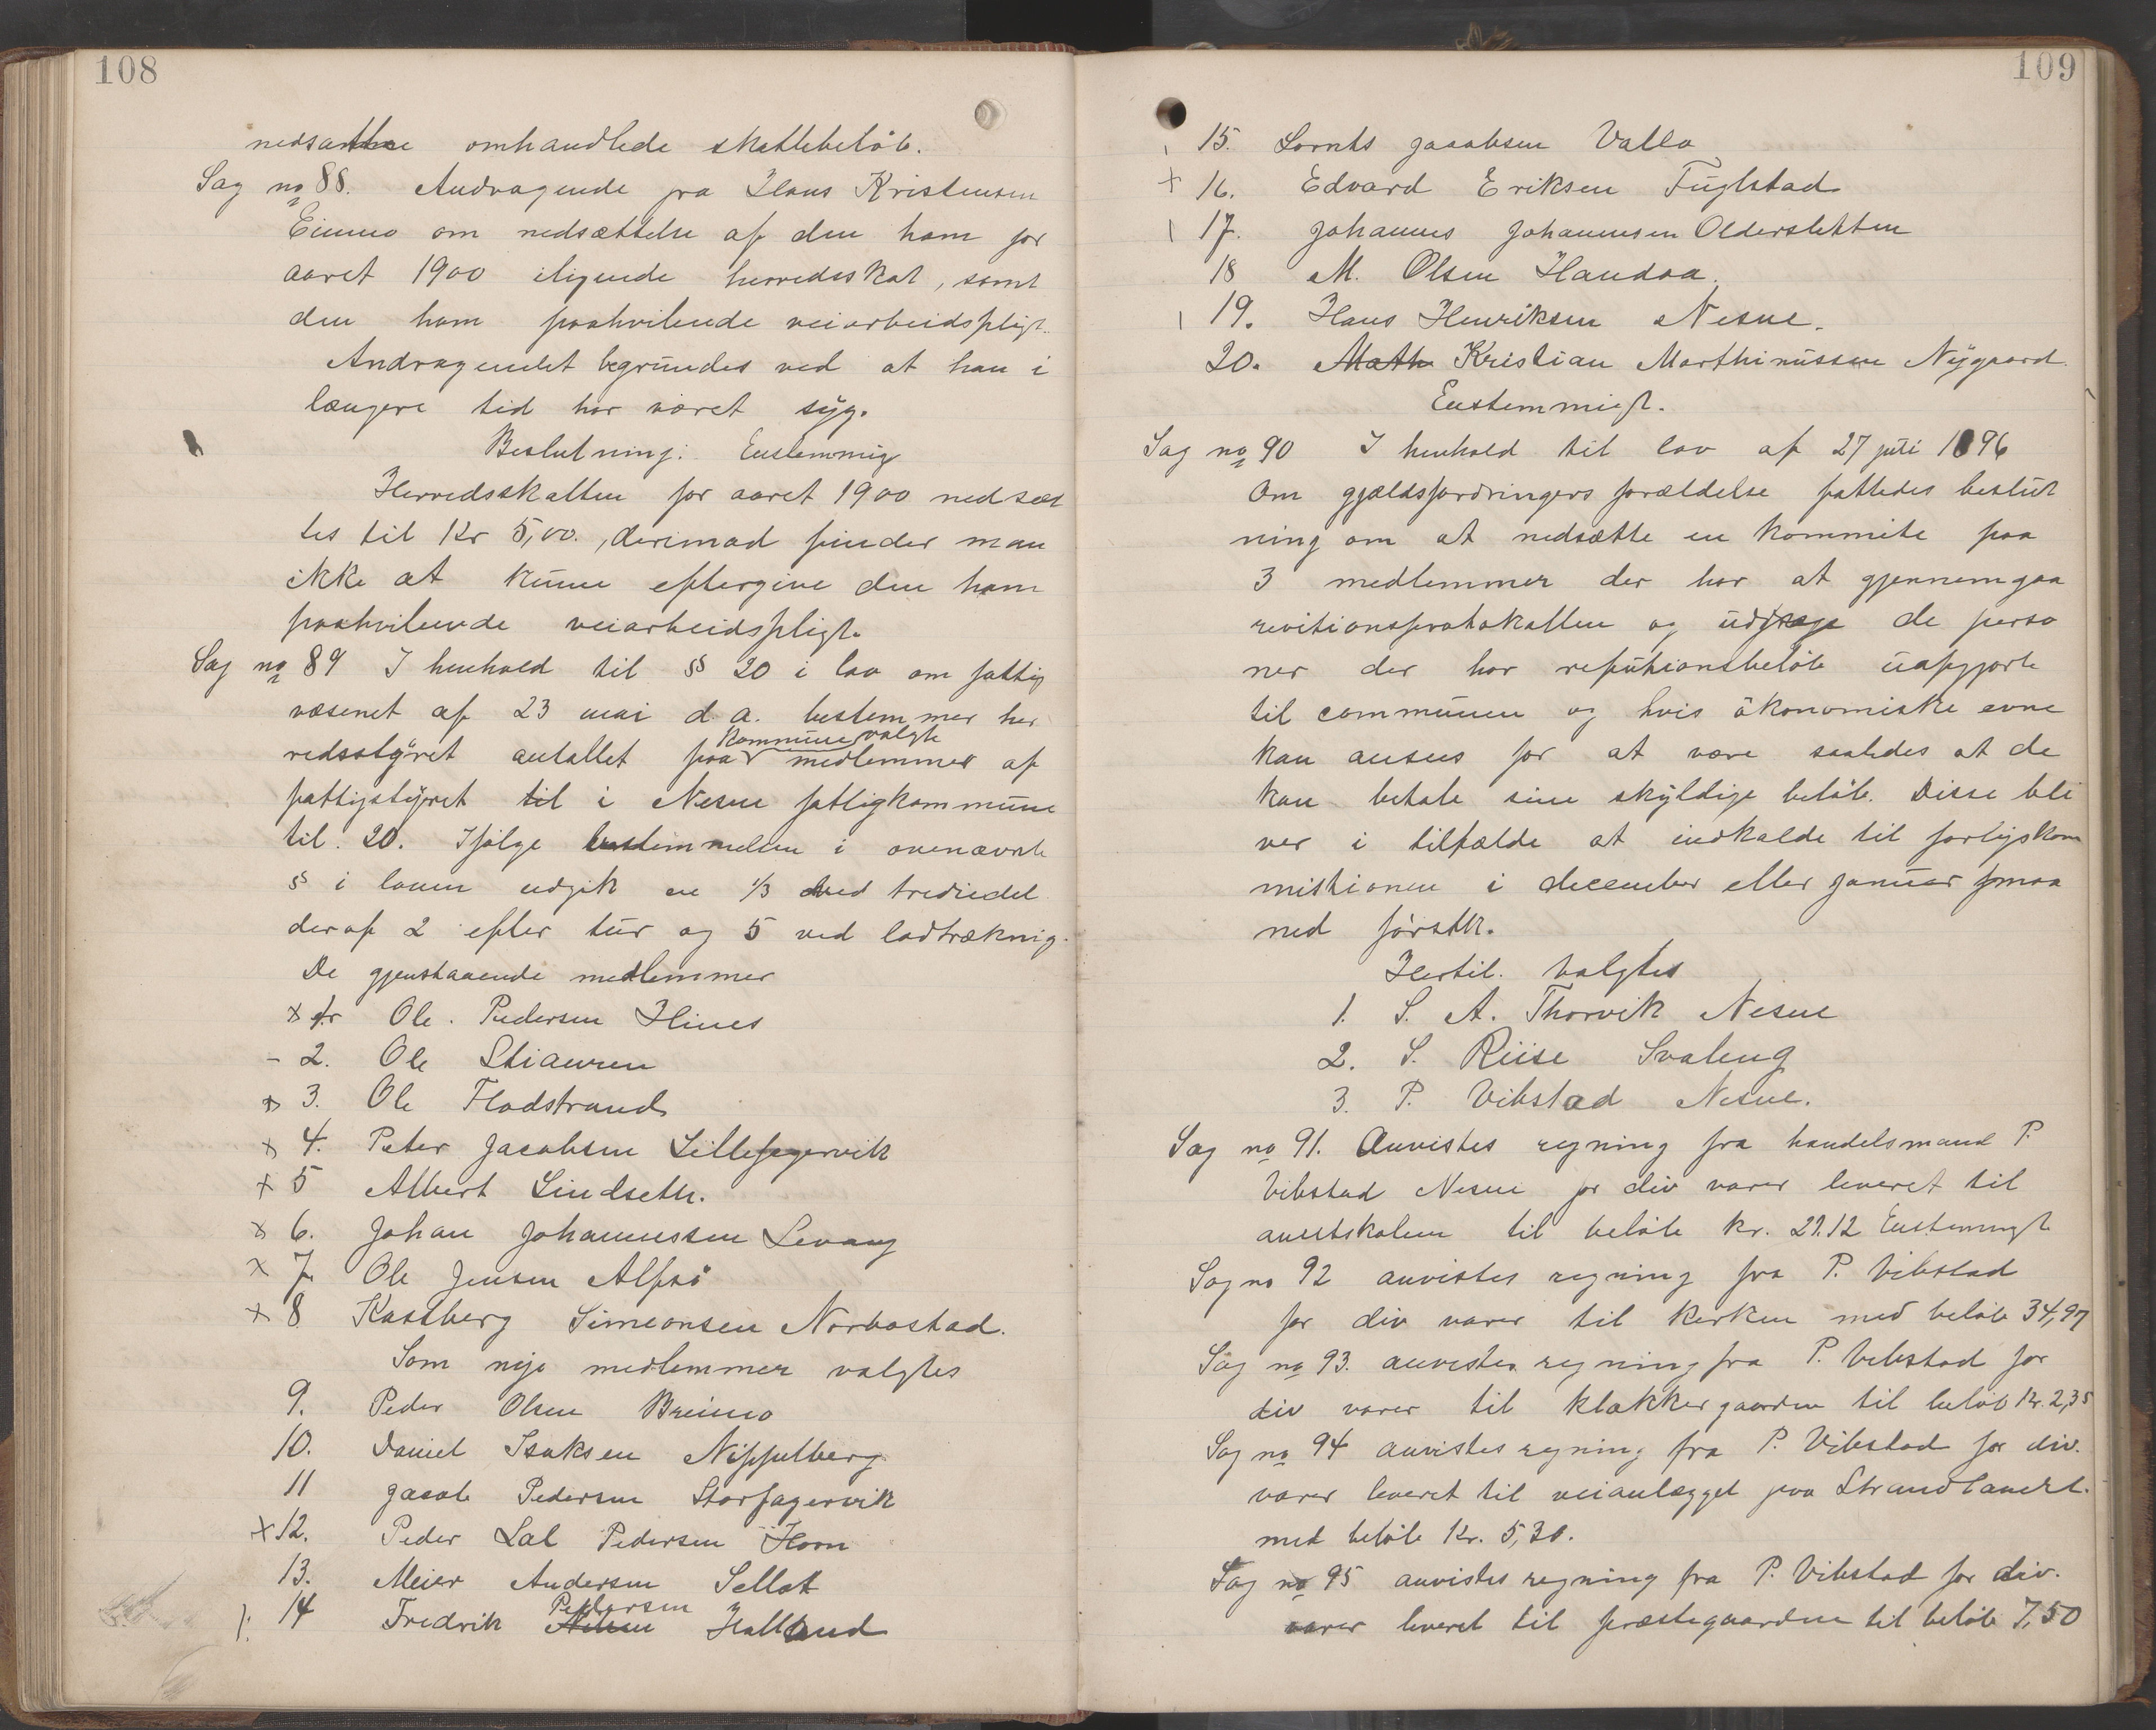 108
nedsatte omhandlede skattebeløb.
Sag no 88. Andragende fra Hans Kristensen
Einmo om nedsættelse af den ham for
aaret 1900 ilignede herredsskat, samt
den ham paahvilende veiarbeidspligt.
Andragendet begrundes ved at han i
længere tid har været syg.
Beslutning: Enstemmig
Herredsskatten for aaret 1900 nedsæt
tes til Kr 5,00., derimod finder man
ikke at kunne eftergive den ham
paahvilende veiarbeidspligt.
Sag no 89 I henhold til § 20 i lov om fattig
væsenet af 23 mai d. a. bestemmer her
kommune valgte
redsstyret antallet paa medlemmer af
fattigstyret til i Nesne fattigkommune
til 20. Ifølge bestemmelsen i ovenævnte
§ i loven udgik en 1/3 trediedel
deraf 2 efter tur og 5 ved lodtrækning.
De gjenstaaende medlemmer
x 1. Ole Pedersen Hines
- 2. Ole Stianren
x 3. Ole Flodstrand
x 4. Peter Jacobsen Lillefagervik
x 5 Albert Lindseth.
x 6. Johan Johannessen Levang
x 7. Ole Jensen Alfsö
x 8 Kastberg Simeonsen Norbostad.
Som nye medlemmer valgtes
9. Peder Olsen Breimo
10. Daniel Isaksen Nippelberg
11 Jacob Pedersen Storfagervik
x 12. Peder Lal Pedersen Horn
13. Meier Andersen Sellot
Pedersen
14 Fredrik Nilsen Halland
109
15. Lornts Jacobsen Valla
x 16. Edvard Eriksen Fuglstad
17. Johannes Johannesen Oldersletten
18 M. Olsen Handaa.
19. Hans Henriksen Nesne.
20. Math Kristian Marthinussen Nygaard
Enstemmigt.
Sag no 90 I henhold til lov af 27 juli 1896
Om gjældsfordringers forældelse fattedes beslut
ning om at nedsætte en kommite paa
3 medlemmer der har at gjennemgaa
revitionsprotokollen og de perso
ner der har refutionsbeløb uafgjorte
til communen og hvis økonomiske evne
kan anses for at være saaledes at de
kan betale sine skyldige beløb. Disse bli
ver i tilfælde at indkalde til forligskom
mistionen i december eller januar maa
ned førstk.
Hertil valgtes
1. S. A. Thorvik Nesne
2. S. Riise Svaleng
3. P. Vibstad Nesne.
Sag no 91. Anvistes regning fra handelsmand P.
Vibstad Nesne for div varer leveret til
amtskolen til beløb kr. 29.12 Enstemmigt
Sag no 92 anvistes regning fra P. Vibstad
for div varer til kirken med beløb 34,97
Sag no 93. anvistes regning fra P. Vibstad for
div varer til klokkergaarden til beløb Kr. 2,35
Sag no 94 anvistes regning fra P. Vibstad for div.
varer leveret til veianlægget paa Strandlandet.
med beløb Kr. 5,30.
Sag no 95 anvistes regning fra P. Vibstad for div.
varer leveret til præstegaarden til beløb 7,50